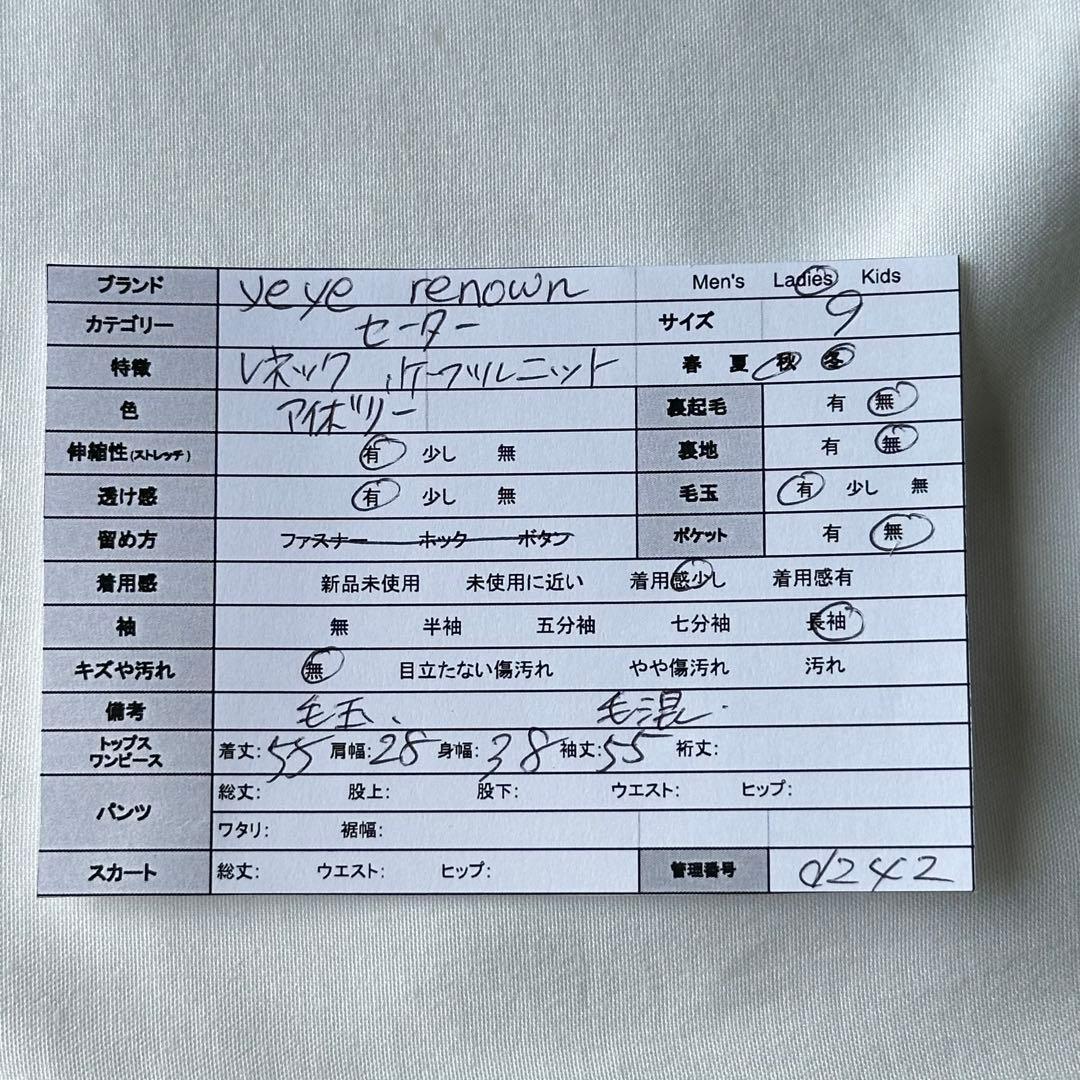 ブランド yeye renown Men's Ladies Kids
カテゴリー セーター サイズ 9
特徴 Vネック、ケーブルニット 春 夏 秋 冬
色 アイボリー 裏起毛 有 無
伸縮性(ストレッチ) 有 少し 無 裏地 有 無
透け感 有 少し 無 毛玉 有 少し 無
留め方 ファスナー ホック ボタン ポケット 有 無
着用感 新品未使用 未使用に近い 着用感少し 着用感有
袖 無 半袖 五分袖 七分袖 長袖
キズや汚れ 無 目立たない傷汚れ やや傷汚れ 汚れ
備考 毛玉、 毛混.
トップス
ワンピース 着丈:55 肩幅:28 身幅:38 袖丈:55 裄丈:
パンツ 総丈: 股上: 股下: ウエスト: ヒップ:
ワタリ: 裾幅:
スカート 総丈: ウエスト: ヒップ: 管理番号 d242